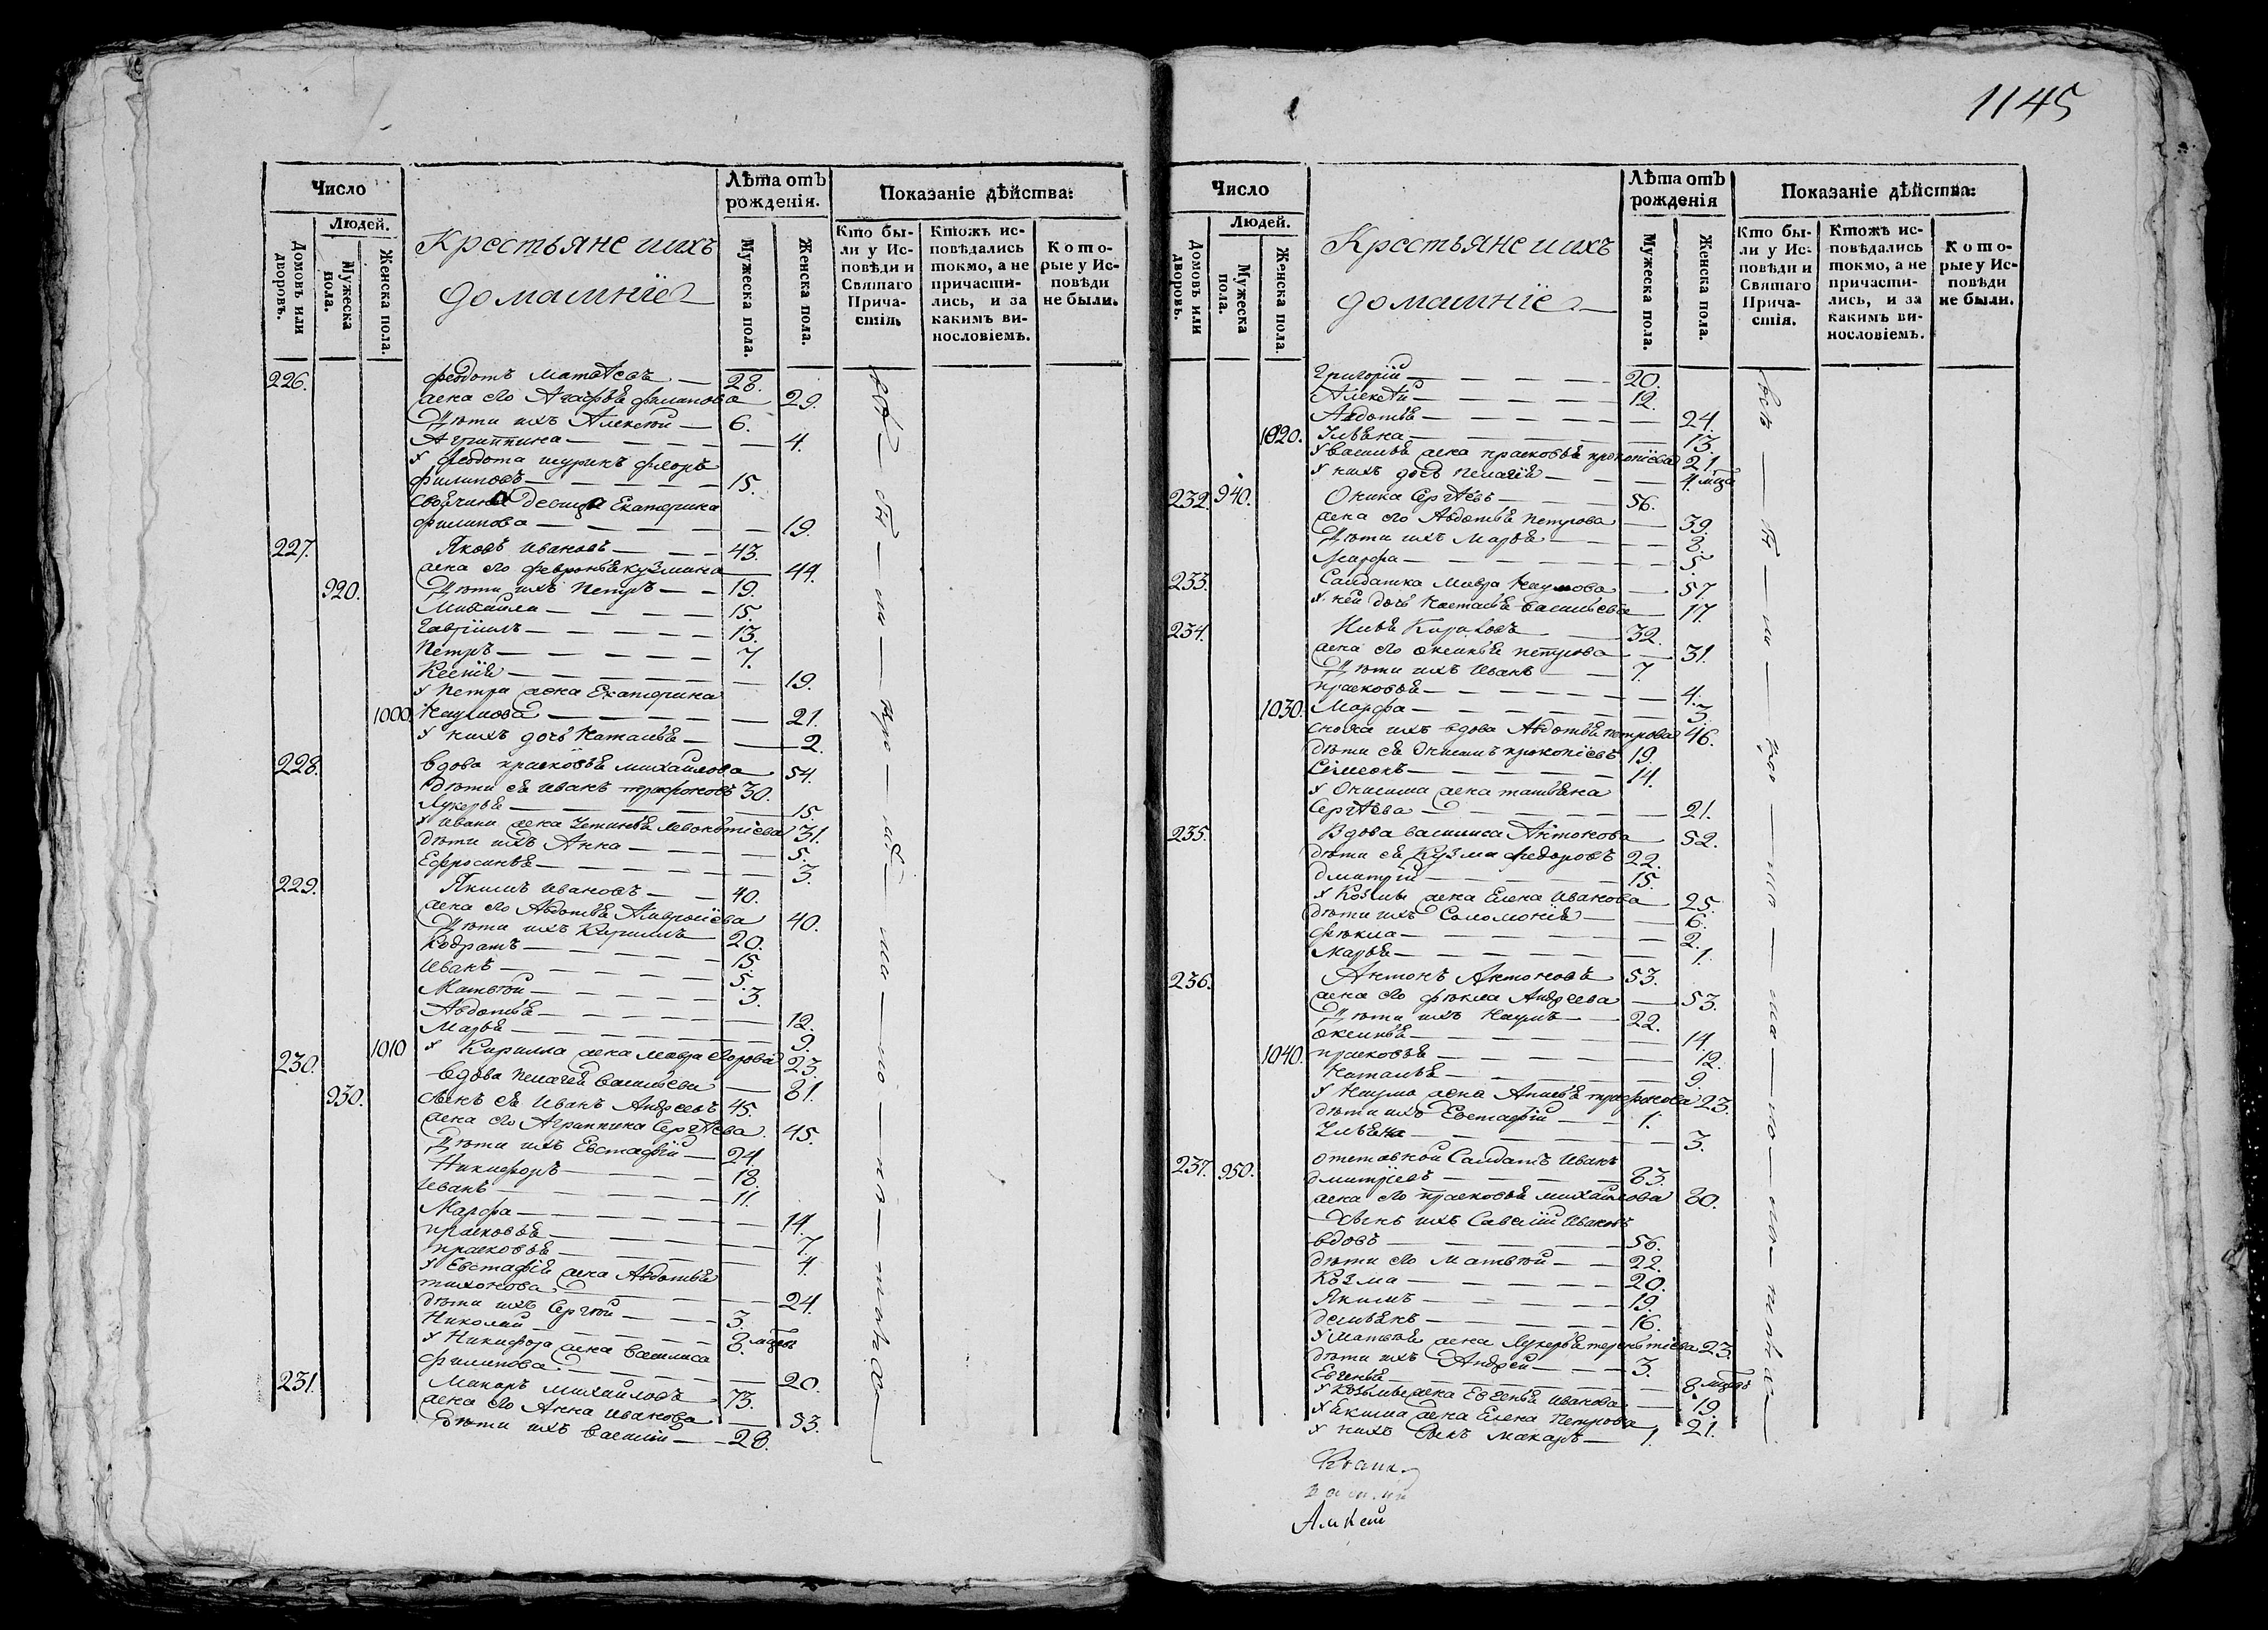 1145
Число
Лѣта отъ рожденія.
Показаніе дѣйства:
Людей.
Домовъ или дворовъ.
Мужеска пола.
Женска пола.
Крестьяне и ихъ
домашніе
Мужеска пола.
Женска пола.
Кто были у Исповѣди и Святаго Причастія.
Ктожъ исповѣдались токмо, а не причастились, и за какимъ винословіемъ.
Которые у Исповѣди не были.
226. Федотъ Матвѣевъ 28.
жена его Агафья Филипова 29.
Дѣти ихъ Алексѣй 6.
Агриппина 4.
у Федота шуринъ Флоръ
Филиповъ 15.
своячина девица Екатерина
Филипова 19.
227. Яковъ Ивановъ 43.
жена его Февронья Кузмина 44.
920. Дѣти ихъ Петръ 19.
Михайла 15.
Гавріилъ 13.
Петръ 7.
Ксенія 19.
у Петра жена Екатерина
1000. Наумова 21.
у нихъ дочь Наталья 2.
228. Вдова Прасковья Михайлова 54.
дѣти ея Иванъ Трифоновъ 30.
Лукерья 15.
у Ивана жена Устинья Леонтіева 31.
дѣти ихъ Анна 5.
Ефросинья 3.
229. Якимъ Ивановъ 40.
жена его Авдотья Амвросіева 40.
Дѣти ихъ Кирилла 20.
Кодратъ 15.
Иванъ 5.
Матвѣй 3.
Авдотья 12.
Марья 9.
1010 у Кирилла жена Мавра Егорова 23.
230. Вдова Пелагея Васильева 81.
930. сынъ ея Иванъ Андреевъ 45.
жена его Агриппина Сергѣева 45.
Дѣти ихъ Евстафій 24.
Никифоръ 18.
Иванъ 11.
Марфа 14.
Прасковья 7.
Прасковья 4.
у Евстафія жена Авдотья
Тихонова 24.
дѣти ихъ Сергѣй 3.
Николай 8. мцовъ
у Никифора жена Василиса
Филипова 20.
231. Макаръ Михайловъ 73.
жена его Анна Иванова 53.
Дѣти ихъ Василій 28.
Число
Лѣта отъ рожденія
Показаніе дѣйства:
Людей.
Домовъ или дворовъ.
Мужеска пола.
Женска пола.
Крестьяне и ихъ
домашніе
Мужеска пола.
Женска пола.
Кто были у Исповѣди и Святаго Причастія.
Ктожъ исповѣдались токмо, а не причастились, и за какимъ винословіемъ.
Которые у Исповѣди не были.
Григорій 20.
Алексѣй 12.
Авдотья 24.
1020. Ульяна 13.
у Василья жена Прасковья Прокопіева 21.
у нихъ дочь Пелагія 4. мца
232. 940. Оника Сергѣевъ 56.
жена его Авдотья Петрова 39.
Дѣти ихъ Марья 8.
Марфа 5.
233. Салдатка Мавра Наумова 57.
у ней дочь Настасья Васильева 17.
234. Кириловъ 32.
жена его Оксинья Петрова 31.
Дѣти ихъ Иванъ 7.
Прасковья 4.
1030. Марфа 3.
сноха ихъ вдова Авдотья Петрова 46.
дѣти ея Онисимъ Прокопіевъ 19.
Симеонъ 14.
у Онисима жена Татьяна
Сергѣева 21.
235. Вдова Василиса Антонова 52.
дѣти ея Кузма Федоровъ 22.
Дмитрій 15.
у Козмы жена Елена Иванова 25.
дѣти ихъ Соломонія 6.
Фекла 2.
Марья 1.
236. Антонъ Антоновъ 53.
жена его Фекла Андреева 53.
Дѣти ихъ Наумъ 22.
Оксинья 14.
1040. Прасковья 12.
Наталья 9.
у Наума жена Анисья Трифонова 23.
дѣти ихъ Евстафій 1.
Ульяна 3.
237. 950. отставной Салдатъ Иванъ
Дмитріевъ 83.
жена его Прасковья Михайлова 80.
Сынъ ихъ Савелій Ивановъ
вдовъ 56.
дѣти его Матвѣй 22.
Козма 20.
Якимъ 19.
Демьянъ 16.
у Матвѣя жена Лукерья Терентіева 23.
дѣти ихъ Андрей 3.
Евгенья 8 мцовъ
у Козьмы жена Евгенья Иванова 19.
у Якима жена Елена Петрова 21.
у нихъ сынъ Макаръ 1.